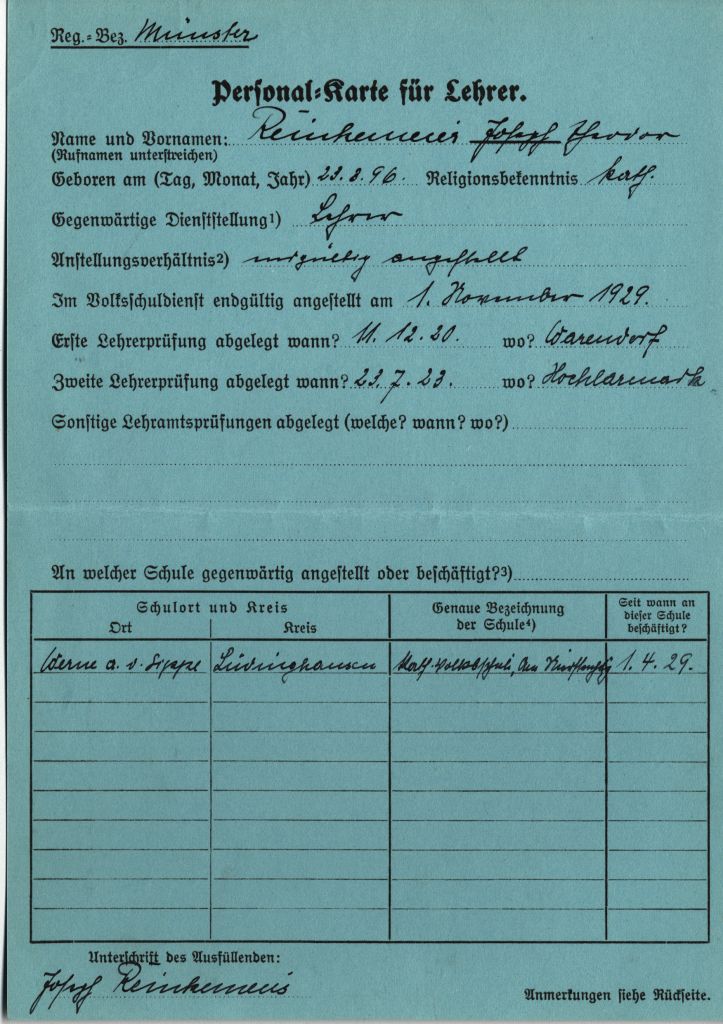 Reg.-Bez. Münster
Personal-Karte für Lehrer.
Name und Vornamen: Reinkemeier Joseph Theodor
(Rufnamen unterstreichen)
Geboren am (Tag, Monat, Jahr) 23.8.96. Religionsbekenntnis kath.
Gegenwärtige Dienststellung¹) Lehrer
Anstellungsverhältnis²) endgültig angestellt
Im Volksschuldienst endgültig angestellt am 1. November 1929.
Erste Lehrerprüfung abgelegt wann? 11.12.20. wo? Warendorf
Zweite Lehrerprüfung abgelegt wann? 23.7.23. wo? Hochlarmark
Sonstige Lehramtsprüfungen abgelegt (welche? wann? wo?)
An welcher Schule gegenwärtig angestellt oder beschäftigt?³)
Schulort und Kreis
Ort Kreis
Genaue Bezeichnung
der Schule⁴)
Seit wann an
dieser Schule
beschäftigt?
Werne a. d. Lippe Lüdinghausen Kath. Volksschule, 1.4.29.
Unterschrift des Ausfüllenden:
Joseph Reinkemeier
Anmerkungen siehe Rückseite.